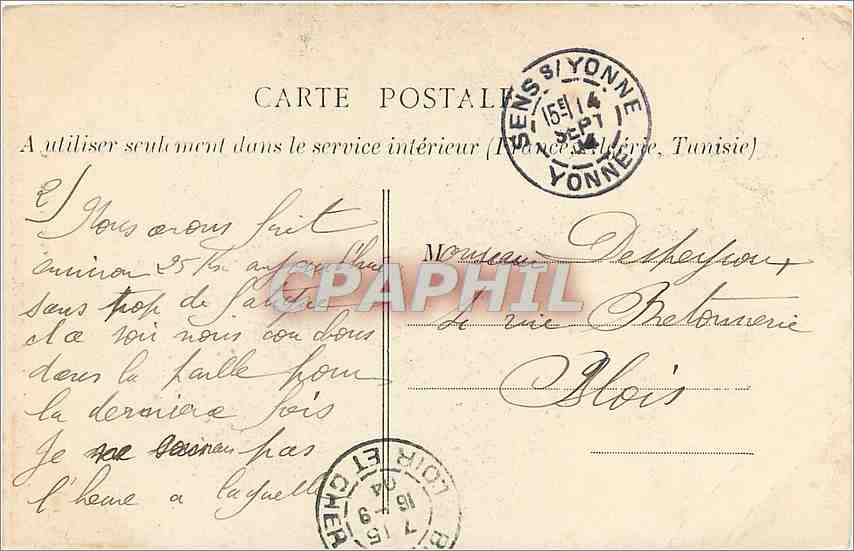 CARTE POSTALE
A utiliser seulement dans le service intérieur (France, Algérie, Tunisie)
SENS S/YONNE
15E 14
SEPT
04
YONNE
2/ Nous avons fait
environ 25 Km aujourd'hui
sans trop de fatigue
et ce soir nous couchons
dans la paille pour
la dernière fois
Je ne sais pas
l'heure a laquelle
Monsieur Despeyroux
4 rue Bretonnerie
Blois
CPAPHIL
LOIR ET CHER
7 15
16 - 9
04